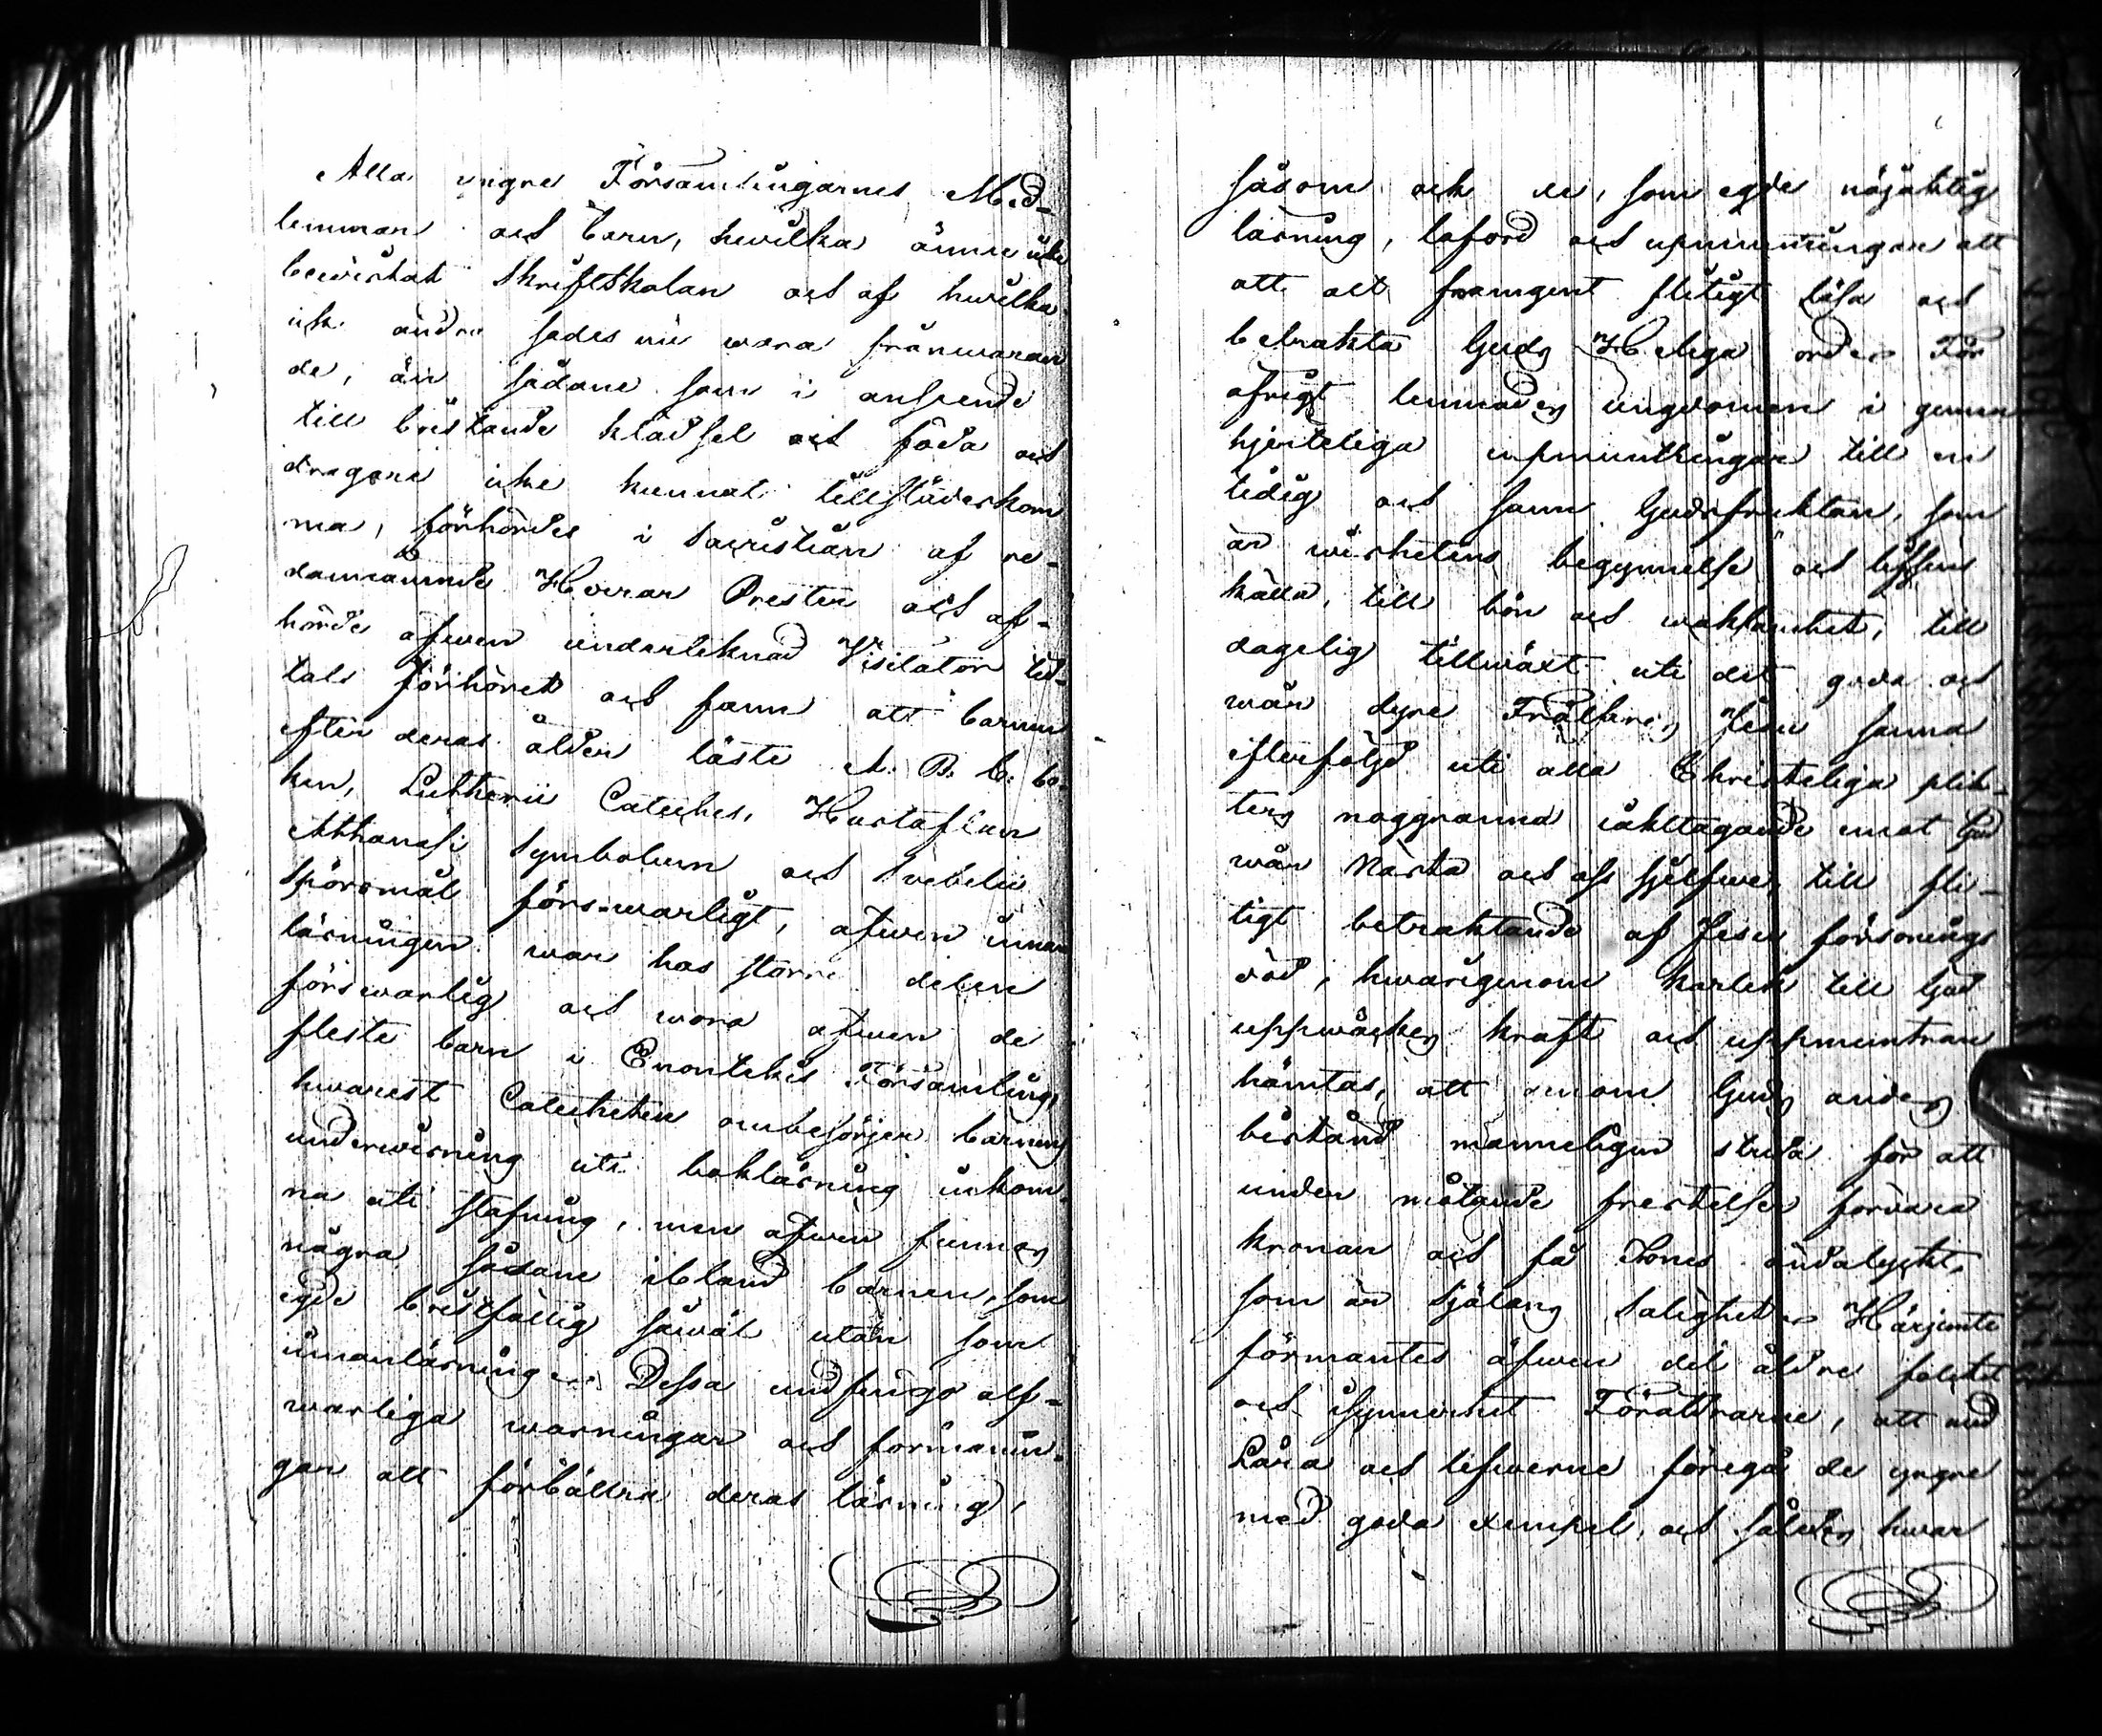 Alla yngre Församlingarnes Med-
lemmar och barn, hwilka ännu icke
bewistat Skriftskolan och af hwilka
ick andra sades nu wara frånwaran
de, än sådane som i anseende
till bristande klädsel och föda och
dragare icke kunnat tillstädeskom
ma, förhördes i Sacristian af re-
damnämnde Herrar Prester och af-
hörde afwen underteknad Visitator
tals förhöret och fann att barnen
efter deras ålder läste A. B. C. bo-
ken, Lutherii Cateches, Hustaflan
Athanasi Symbolum och Svebelii
Spörsmål förswarligt, afwen innan
läsningen war hos större delen
förswarlig och woro afwen de
fleste barn i Enontekis Församling,
hwarest Catecheten ombesörjer barnens
underwisning uti bokläsning inkom-
na uti stafning, men afwen funnos
några sådane ibland barnen, som
egde bristfällig såwäl utan som
innanläsning. Dessa undfingo alf-
warliga warningar och förmanin-
gar att förbättra deras läsning,
såsom ock de, som egde nöjaktig
läsning, loford och upmuntringar att
att alt framgent flitigt läsa och
betrakta Guds Heliga ord. För
öfrigt lemnades ungdomen i gemen
hjerteliga upmuntringar till en
tidig och sann Gudsfruktan, som
är wishetens begynnelse och lifsens
källa, till bön och waksamhet, till
dagelig tillwäxt uti det goda och
wår dyre Frälsares Jesu sanna
efterföljd uti alla Christeliga plik-
ters noggranna iakttagande emot Gud
wår Nästa och oss sjelfwe, till fli-
tigt betraktande af Jesu försonings
död, hwarigenom kärlek till Gud
uppwäckes kraft och uppmuntran
hämtas, att genom Guds andes
bistånd manneligen strida för att
under mötande frestelser förwara
kronan och få trones ändalyckt,
som är Själans Salighet. Härjemte
förmantes äfwen det äldre folcket
och isynnerhet Föräldrarne, att med
Lära och lefwerne föregå de yngre
med goda exempel, och således hwar